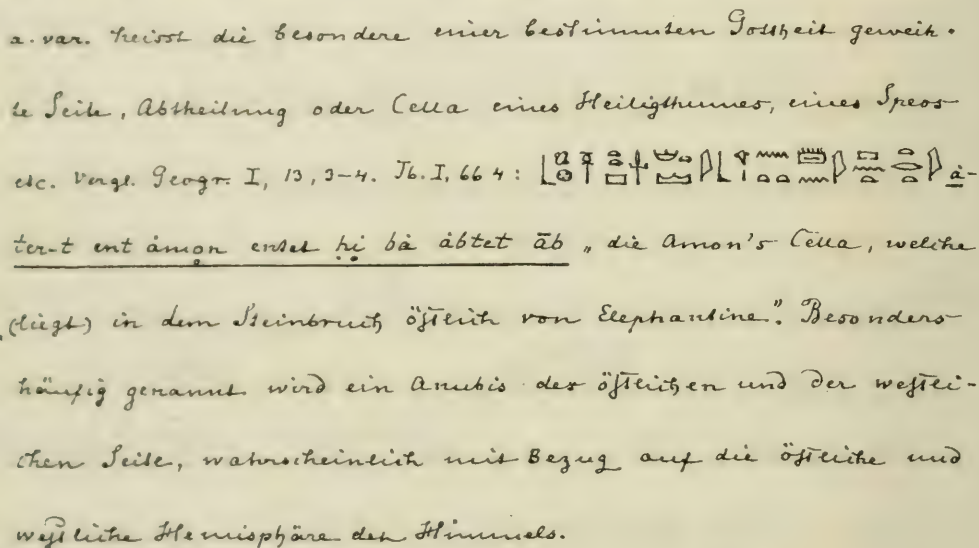 a. var. heisst die besondere einer bestimmten Gottheit geweih-
te Seite, Abtheilung oder Cella eines Heiligthumes, eines Speos
etc. Vergl. Geogr. I, 13, 3-4. Ib. I, 66 4: å-
ter-t ent åmon entet ḥi bà åbtet āb „die Amon's Cella, welche
(liegt) in dem Steinbruch östlich von Elephantine". Besonders
häufig genannt wird ein Anubis der östlichen und der westli-
chen Seite, wahrscheinlich mit Bezug auf die östliche und
westliche Hemisphäre des Himmels.